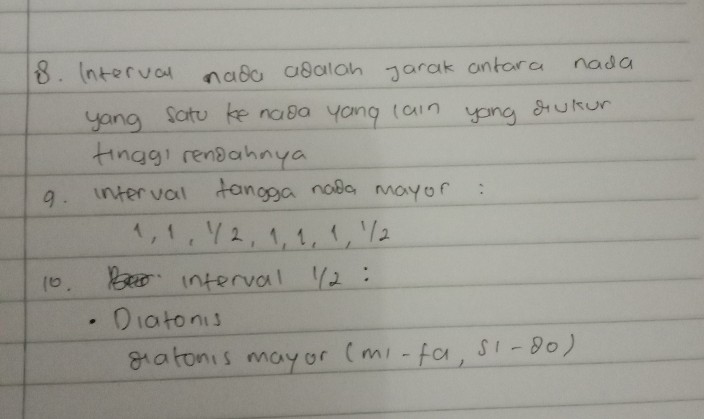 8. Interval nada adalah jarak antara nada
yang satu ke nada yang lain yang diukur
tinggi rendahnya
9. interval tangga nada mayor :
1, 1, 1/2, 1, 1, 1, 1/2
10. interval 1/2 :
• Diatonis
diatonis mayor (mi - fa, si - do)